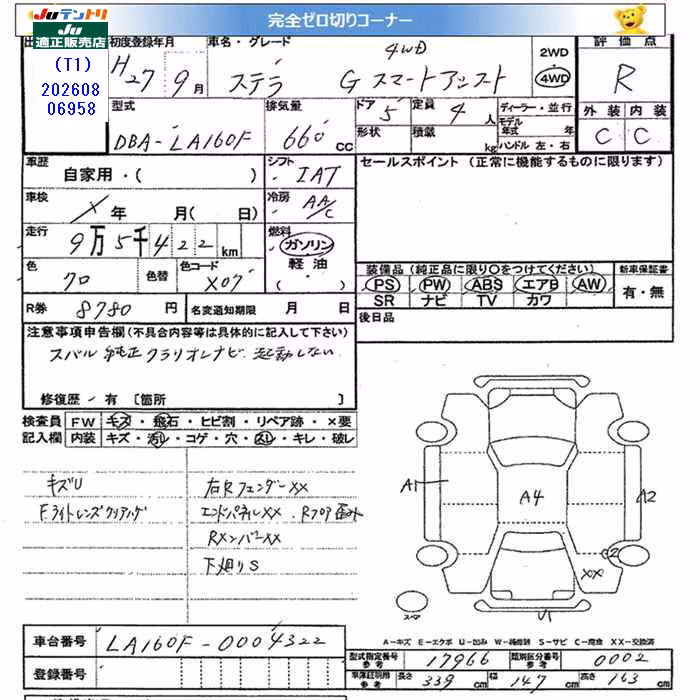 JUテントリ
JU
適正販売店
(T1)
202608
06958
完全ゼロ切りコーナー
初度登録年月
H27年9月
車名・グレード
ステラ G スマートアシスト
4WD
2WD
4WD
評価点
R
型式
DBA-LA160F
排気量
660 CC
ドア 5
定員 4人
形状
積載 kg
ディーラー・並行
モデル年式 年
ハンドル 左・右
外装 内装
C C
車歴
自家用・( )
シフト
IAT
セールスポイント(正常に機能するものに限ります)
車検
X年 月( 日)
冷房
AA/C
走行
9万5千422km
燃料
ガソリン
軽油
・( )
色
クロ
色替
色コード
X07
装備品(純正品に限り○をつけてください)
PS PW ABS エアB AW
SR ナビ TV カワ
新車保証書
有・無
R券 8780円
名変通知期限 月 日
後日品
注意事項申告欄(不具合内容等は具体的に記入して下さい)
スバル純正クラリオンナビ 起動しない
修復歴/有〔箇所 〕
検査員記入欄
FW キズ・飛石・ヒビ割・リペア跡・×要
内装 キズ・汚レ・コゲ・穴・スレ・キレ・破レ
キズU
Fライトレンズクリアハゲ
右Rフェンダー XX
エンドパネル XX Rフロア歪み
Rメンバー XX
下廻りS
A1
A4
A2
XX
U1
スペア
A-キズ E-エクボ U-凹み W-補修跡 S-サビ C-腐食 XX-交換済
車台番号 LA160F-0004322
登録番号
型式指定番号 参考 17966
類別区分番号 参考 0002
車庫証明用 参考 長さ 339cm 幅 147cm 高さ 163cm